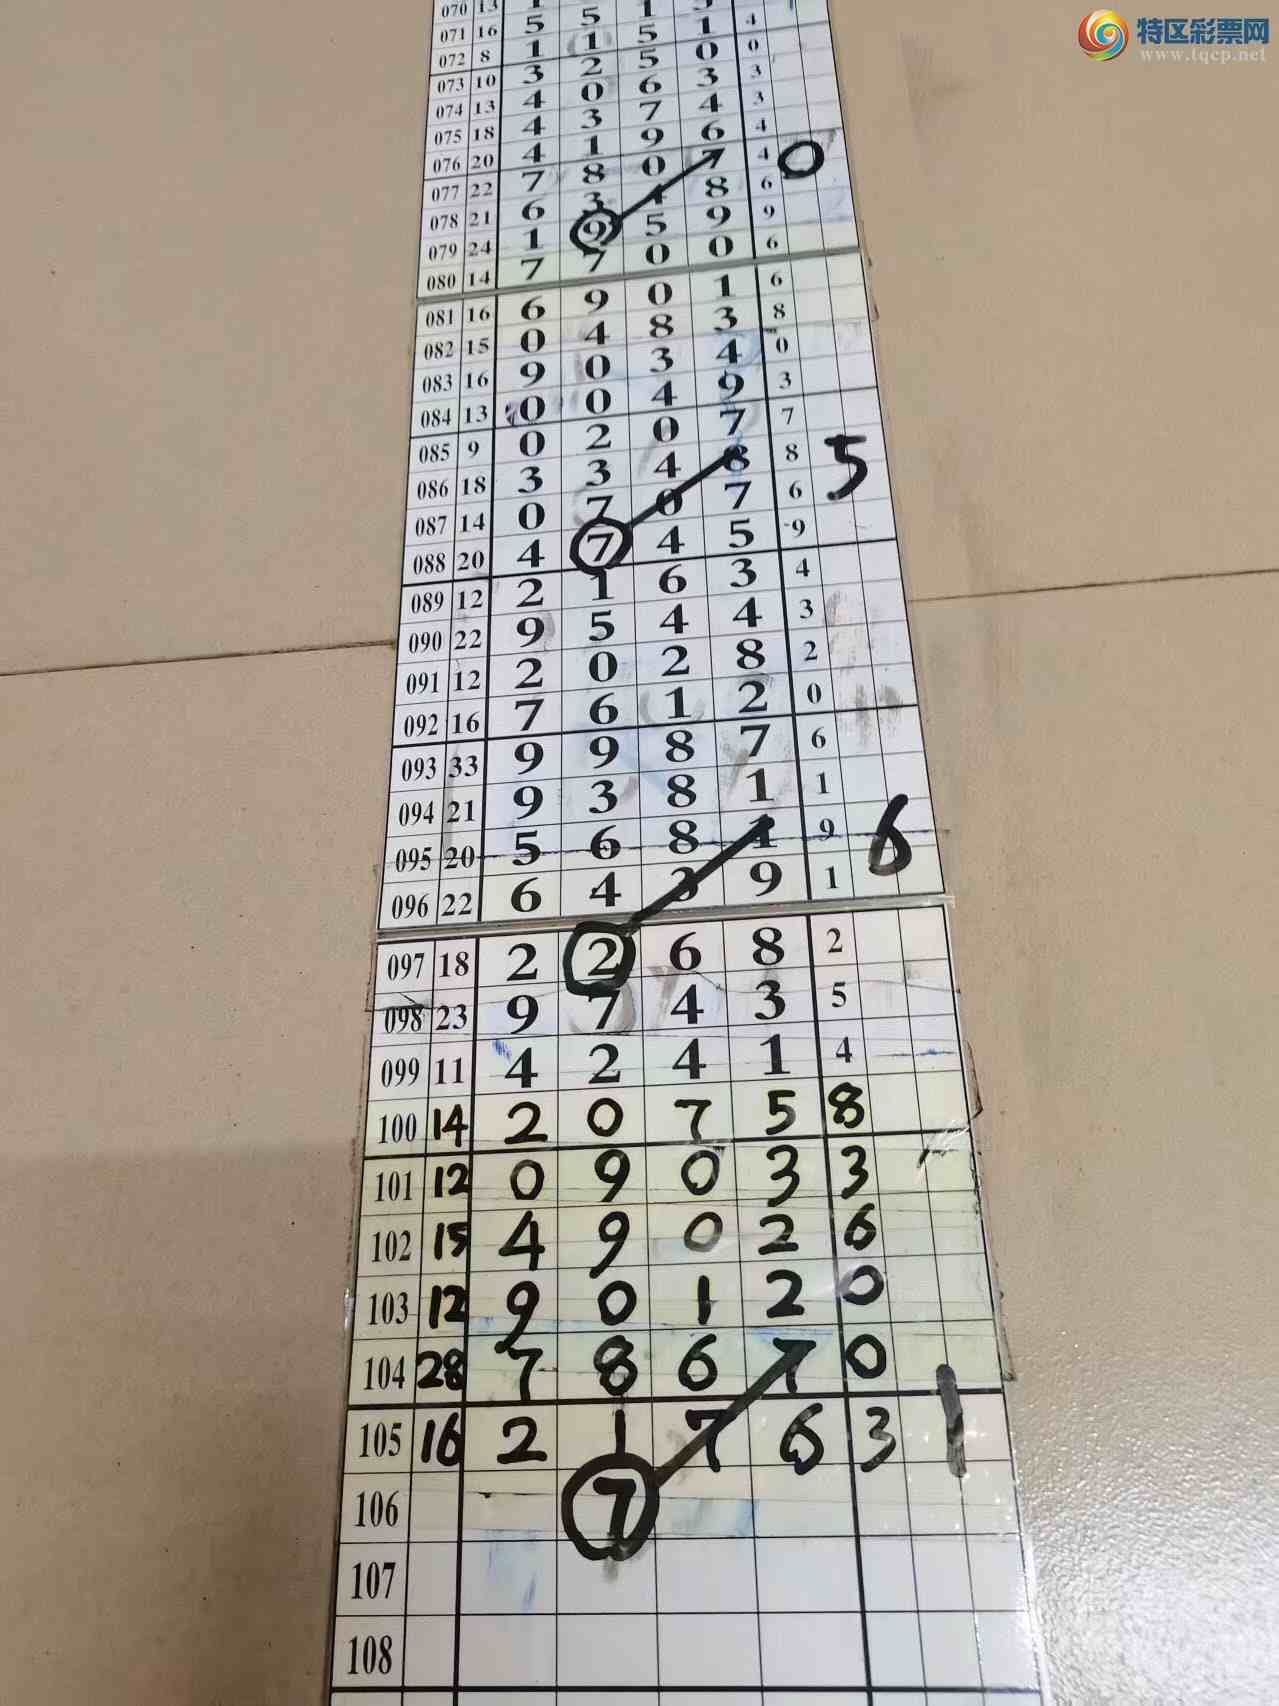 特区彩票网
www.tqcp.net
070 13
071 16 5 5 1 5
072 8 1 1 5 1 4
073 10 3 2 5 0 0
074 13 4 0 6 3 3
075 18 4 3 7 4 3
076 20 4 1 9 6 4
077 22 7 8 0 7 4 0
078 21 6 3 4 8 6
079 24 1 9 5 9 9
080 14 7 7 0 0 6
081 16 6 9 0 1 6
082 15 0 4 8 3 8
083 16 9 0 3 4 0
084 13 0 0 4 9 3
085 9 0 2 0 7 7
086 18 3 3 4 8 8 5
087 14 0 7 0 7 6
088 20 4 7 4 5 9
089 12 2 1 6 3 4
090 22 9 5 4 4 3
091 12 2 0 2 8 2
092 16 7 6 1 2 0
093 33 9 9 8 7 6
094 21 9 3 8 1 1
095 20 5 6 8 1 9 6
096 22 6 4 3 9 1
097 18 2 2 6 8 2
098 23 9 7 4 3 5
099 11 4 2 4 1 4
100 14 2 0 7 5 8
101 12 0 9 0 3 3
102 15 4 9 0 2 6
103 12 9 0 1 2 0
104 28 7 8 6 7 0
105 16 2 1 7 6 3 1
106 7
107
108